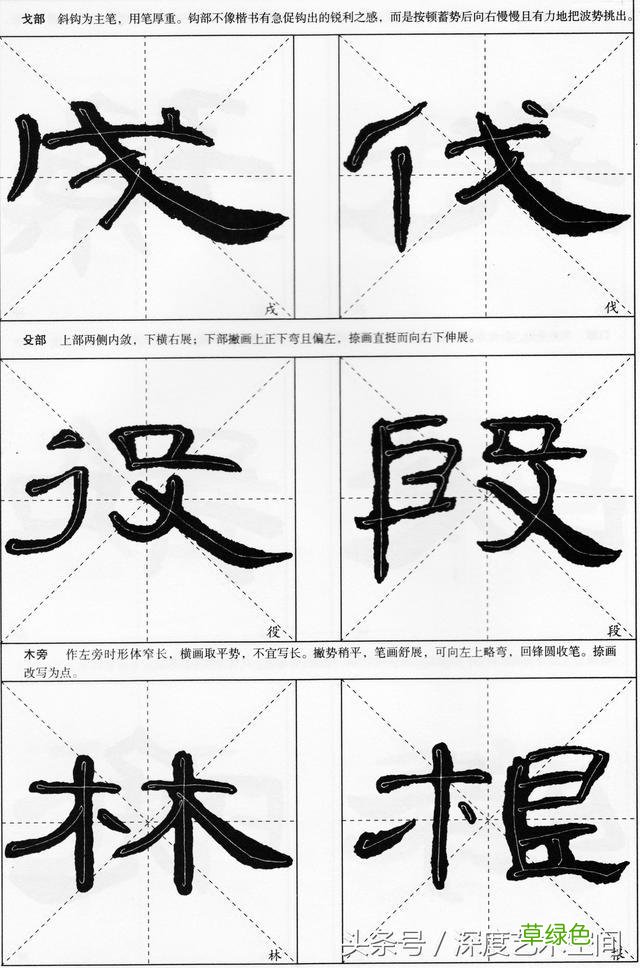 戈部 斜钩为主笔，用笔厚重。钩部不像楷书有急促钩出的锐利之感，而是按顿蓄势后向右慢慢且有力地把波势挑出。
戌 伐
戌 伐
殳部 上部两侧内敛，下横右展；下部撇画上正下弯且偏左，捺画直挺而向右下伸展。
役 段
役 段
木旁 作左旁时形体窄长，横画取平势，不宜写长。撇势稍平，笔画舒展，可向左上略弯，回锋圆收笔。捺画
改写为点。
林 根
林 根
草绿色
头条号／深度艺术空间